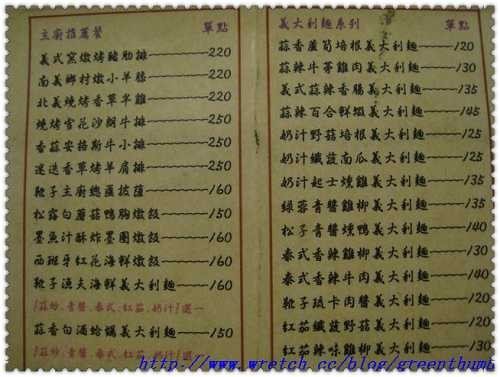 主廚推薦餐 單點
義式窯燉烤豬肋排 220
義式鄉村燉小羊膝 220
北義燒烤香草半雞 220
燒烤雪花沙朗牛排 250
香蒜安格斯牛小排 250
迷迭香草烤羊肩排 250
靴子主廚總匯披薩 160
松露白蘑菇鴨胸燉飯 150
墨魚汁酥炸墨圈燉飯 160
西班牙紅花海鮮燉飯 160
靴子漁夫海鮮義大利麵 160
/蒜炒.青醬.泰式.紅茄.奶汁/選一
蒜香白酒蛤蠣義大利麵 150
/蒜炒.青醬.泰式.紅茄.奶汁/選一
義大利麵系列 單點
蒜香蘆筍培根義大利麵 120
蒜辣牛蒡雞肉義大利麵 130
義式蒜辣香腸義大利麵 135
蒜辣百合鮮蝦義大利麵 145
奶汁野菇培根義大利麵 125
奶汁纖蔬南瓜義大利麵 125
奶汁起士燻雞義大利麵 135
綠蓉青醬雞柳義大利麵 135
松子青醬燒鴨義大利麵 140
泰式香辣雞柳義大利麵 130
泰式香辣牛肉義大利麵 140
靴子琥卡肉醬義大利麵 120
紅茄纖蔬野菇義大利麵 120
紅茄辣味雞柳義大利麵 130
http://www.wretch.cc/blog/greenthumb